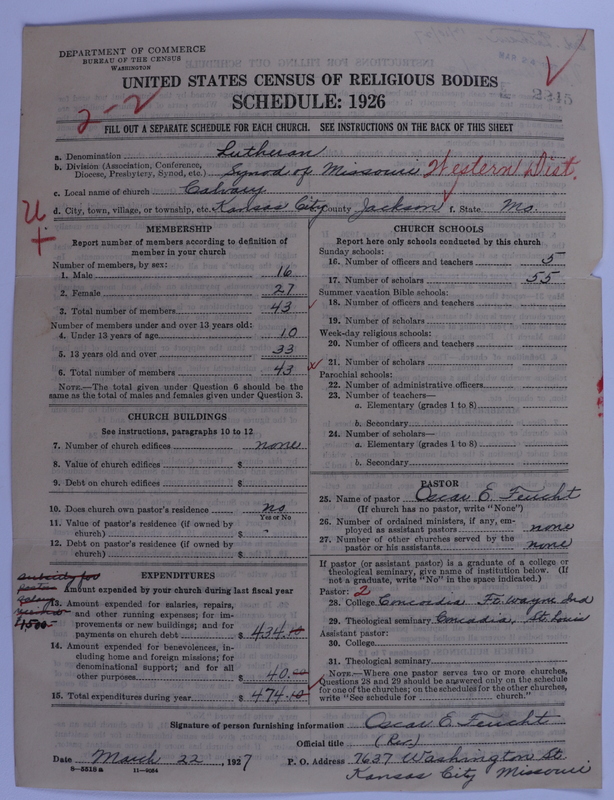 DEPARTMENT OF COMMERCE
BUREAU OF THE CENSUS
WASHINGTON
UNITED STATES CENSUS OF RELIGIOUS BODIES
SCHEDULE: 1926
2215
2-2
FILL OUT A SEPARATE SCHEDULE FOR EACH CHURCH. SEE INSTRUCTIONS ON THE BACK OF THIS SHEET
a. Denomination Lutheran
b. Division (Association, Conference, Diocese, Presbytery, Synod, etc.) Synod of Missouri Western Dist.
c. Local name of church Calvary
d. City, town, village, or township, etc. Kansas City County Jackson f. State Mo.
U
MEMBERSHIP
Report number of members according to definition of
member in your church
Number of members, by sex:
1. Male 16
2. Female 27
3. Total number of members 43
Number of members under and over 13 years old:
4. Under 13 years of age 10
5. 13 years old and over 33
6. Total number of members 43
NOTE.—The total given under Question 6 should be the
same as the total of males and females given under Question 3.
CHURCH BUILDINGS
See instructions, paragraphs 10 to 12
7. Number of church edifices none
8. Value of church edifices $
9. Debt on church edifices $
10. Does church own pastor's residence no
Yes or No
11. Value of pastor's residence (if owned by
church) $ -
12. Debt on pastor's residence (if owned by
church) $
EXPENDITURES
Amount expended by your church during last fiscal year
1500-
13. Amount expended for salaries, repairs,
and other running expenses; for im-
provements or new buildings; and for
payments on church debt $ 434.10
14. Amount expended for benevolences, in-
cluding home and foreign missions; for
denominational support; and for all
other purposes $ 40.00
15. Total expenditures during year $ 474.10
CHURCH SCHOOLS
Report here only schools conducted by this church
Sunday schools:
16. Number of officers and teachers 5
17. Number of scholars 55
Summer vacation Bible schools:
18. Number of officers and teachers
19. Number of scholars
Week-day religious schools:
20. Number of officers and teachers
21. Number of scholars
Parochial schools:
22. Number of administrative officers
23. Number of teachers—
a. Elementary (grades 1 to 8)
b. Secondary
24. Number of scholars—
a. Elementary (grades 1 to 8)
b. Secondary
PASTOR
25. Name of pastor Oscar E. Feucht
(If church has no pastor, write "None")
26. Number of ordained ministers, if any, em-
ployed as assistant pastors none
27. Number of other churches served by the
pastor or his assistants none
If pastor (or assistant pastor) is a graduate of a college or
theological seminary, give name of institution below. (If
not a graduate, write "No" in the space indicated.)
Pastor: 2
28. College Concordia Ft. Wayne Ind
29. Theological seminary Concordia, St. Louis
Assistant pastor:
30. College
31. Theological seminary
NOTE.—Where one pastor serves two or more churches,
Questions 28 and 29 should be answered only on the schedule
for one of the churches; on the schedules for the other churches,
write "See schedule for church."
Signature of person furnishing information Oscar E Feucht
Official title (Rev.)
Date March 22, 1927 P. O. Address 7637 Washington St
8—5518 a 11—9084
Kansas City Missouri